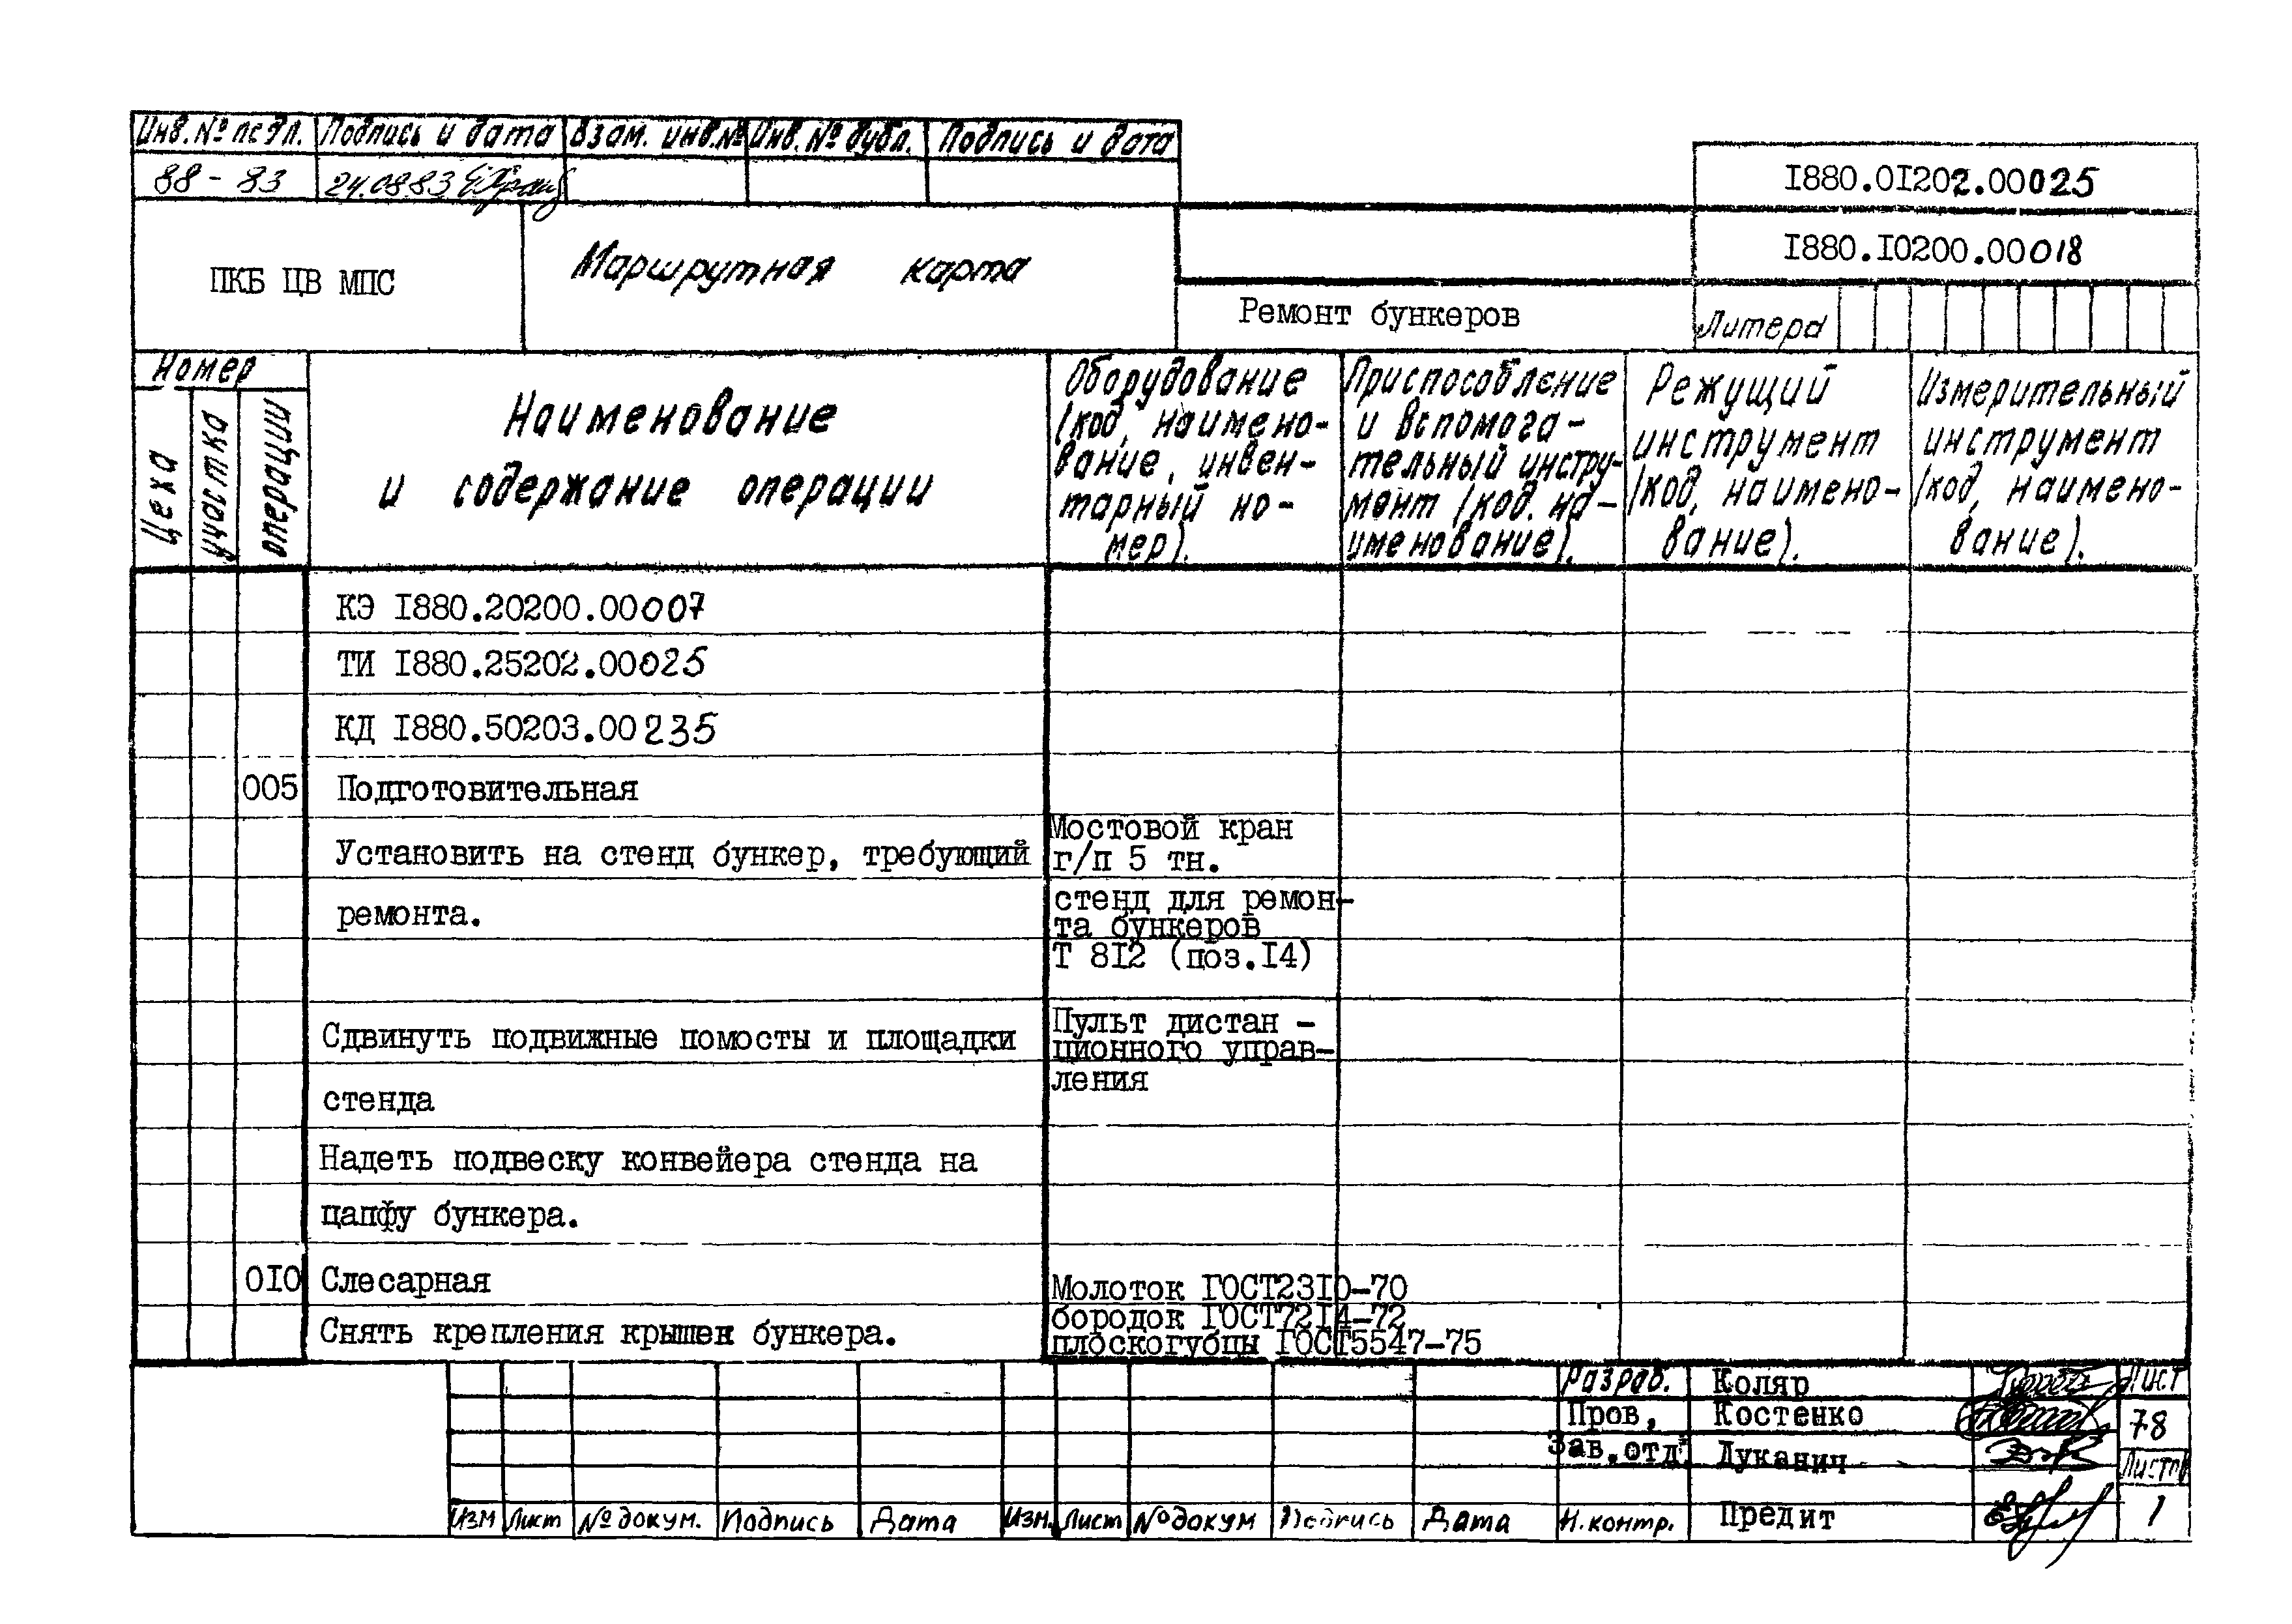 Инв. № подл. Подпись и дата Взам. инв.№ Инв. № дубл. Подпись и дата
88 - 83 24.08.83
I880.0I202.00025
I880.I0200.00018
ПКБ ЦВ МПС Маршрутная карта
Ремонт бункеров Литера
Номер
Цеха участка операции
Наименование
и содержание операции
Оборудование
(код, наимено-
вание, инвен-
тарный но-
мер).
Приспособление
и вспомога-
тельный инстру-
мент (код. на-
именование).
Режущий
инструмент
(код, наимено-
вание).
Измерительный
инструмент
(код, наимено-
вание).
КЭ I880.20200.00007
ТИ I880.25202.00025
КД I880.50203.00235
005 Подготовительная
Установить на стенд бункер, требующий
ремонта.
Мостовой кран
г/п 5 тн.
стенд для ремон-
та бункеров
Т 8I2 (поз.I4)
Сдвинуть подвижные помосты и площадки
стенда
Пульт дистан -
ционного управ-
ления
Надеть подвеску конвейера стенда на
цапфу бункера.
0I0 Слесарная
Снять крепления крышек бункера.
Молоток ГОСТ23I0-70
бородок ГОСТ72I4-72
плоскогубцы ГОСТ5547-75
Разраб. Коляр Лист
Пров, Костенко 78
Зав.отд. Луканич Листов
Изм Лист № докум. Подпись Дата Изм. Лист № докум Подпись Дата Н.контр. Предит 1